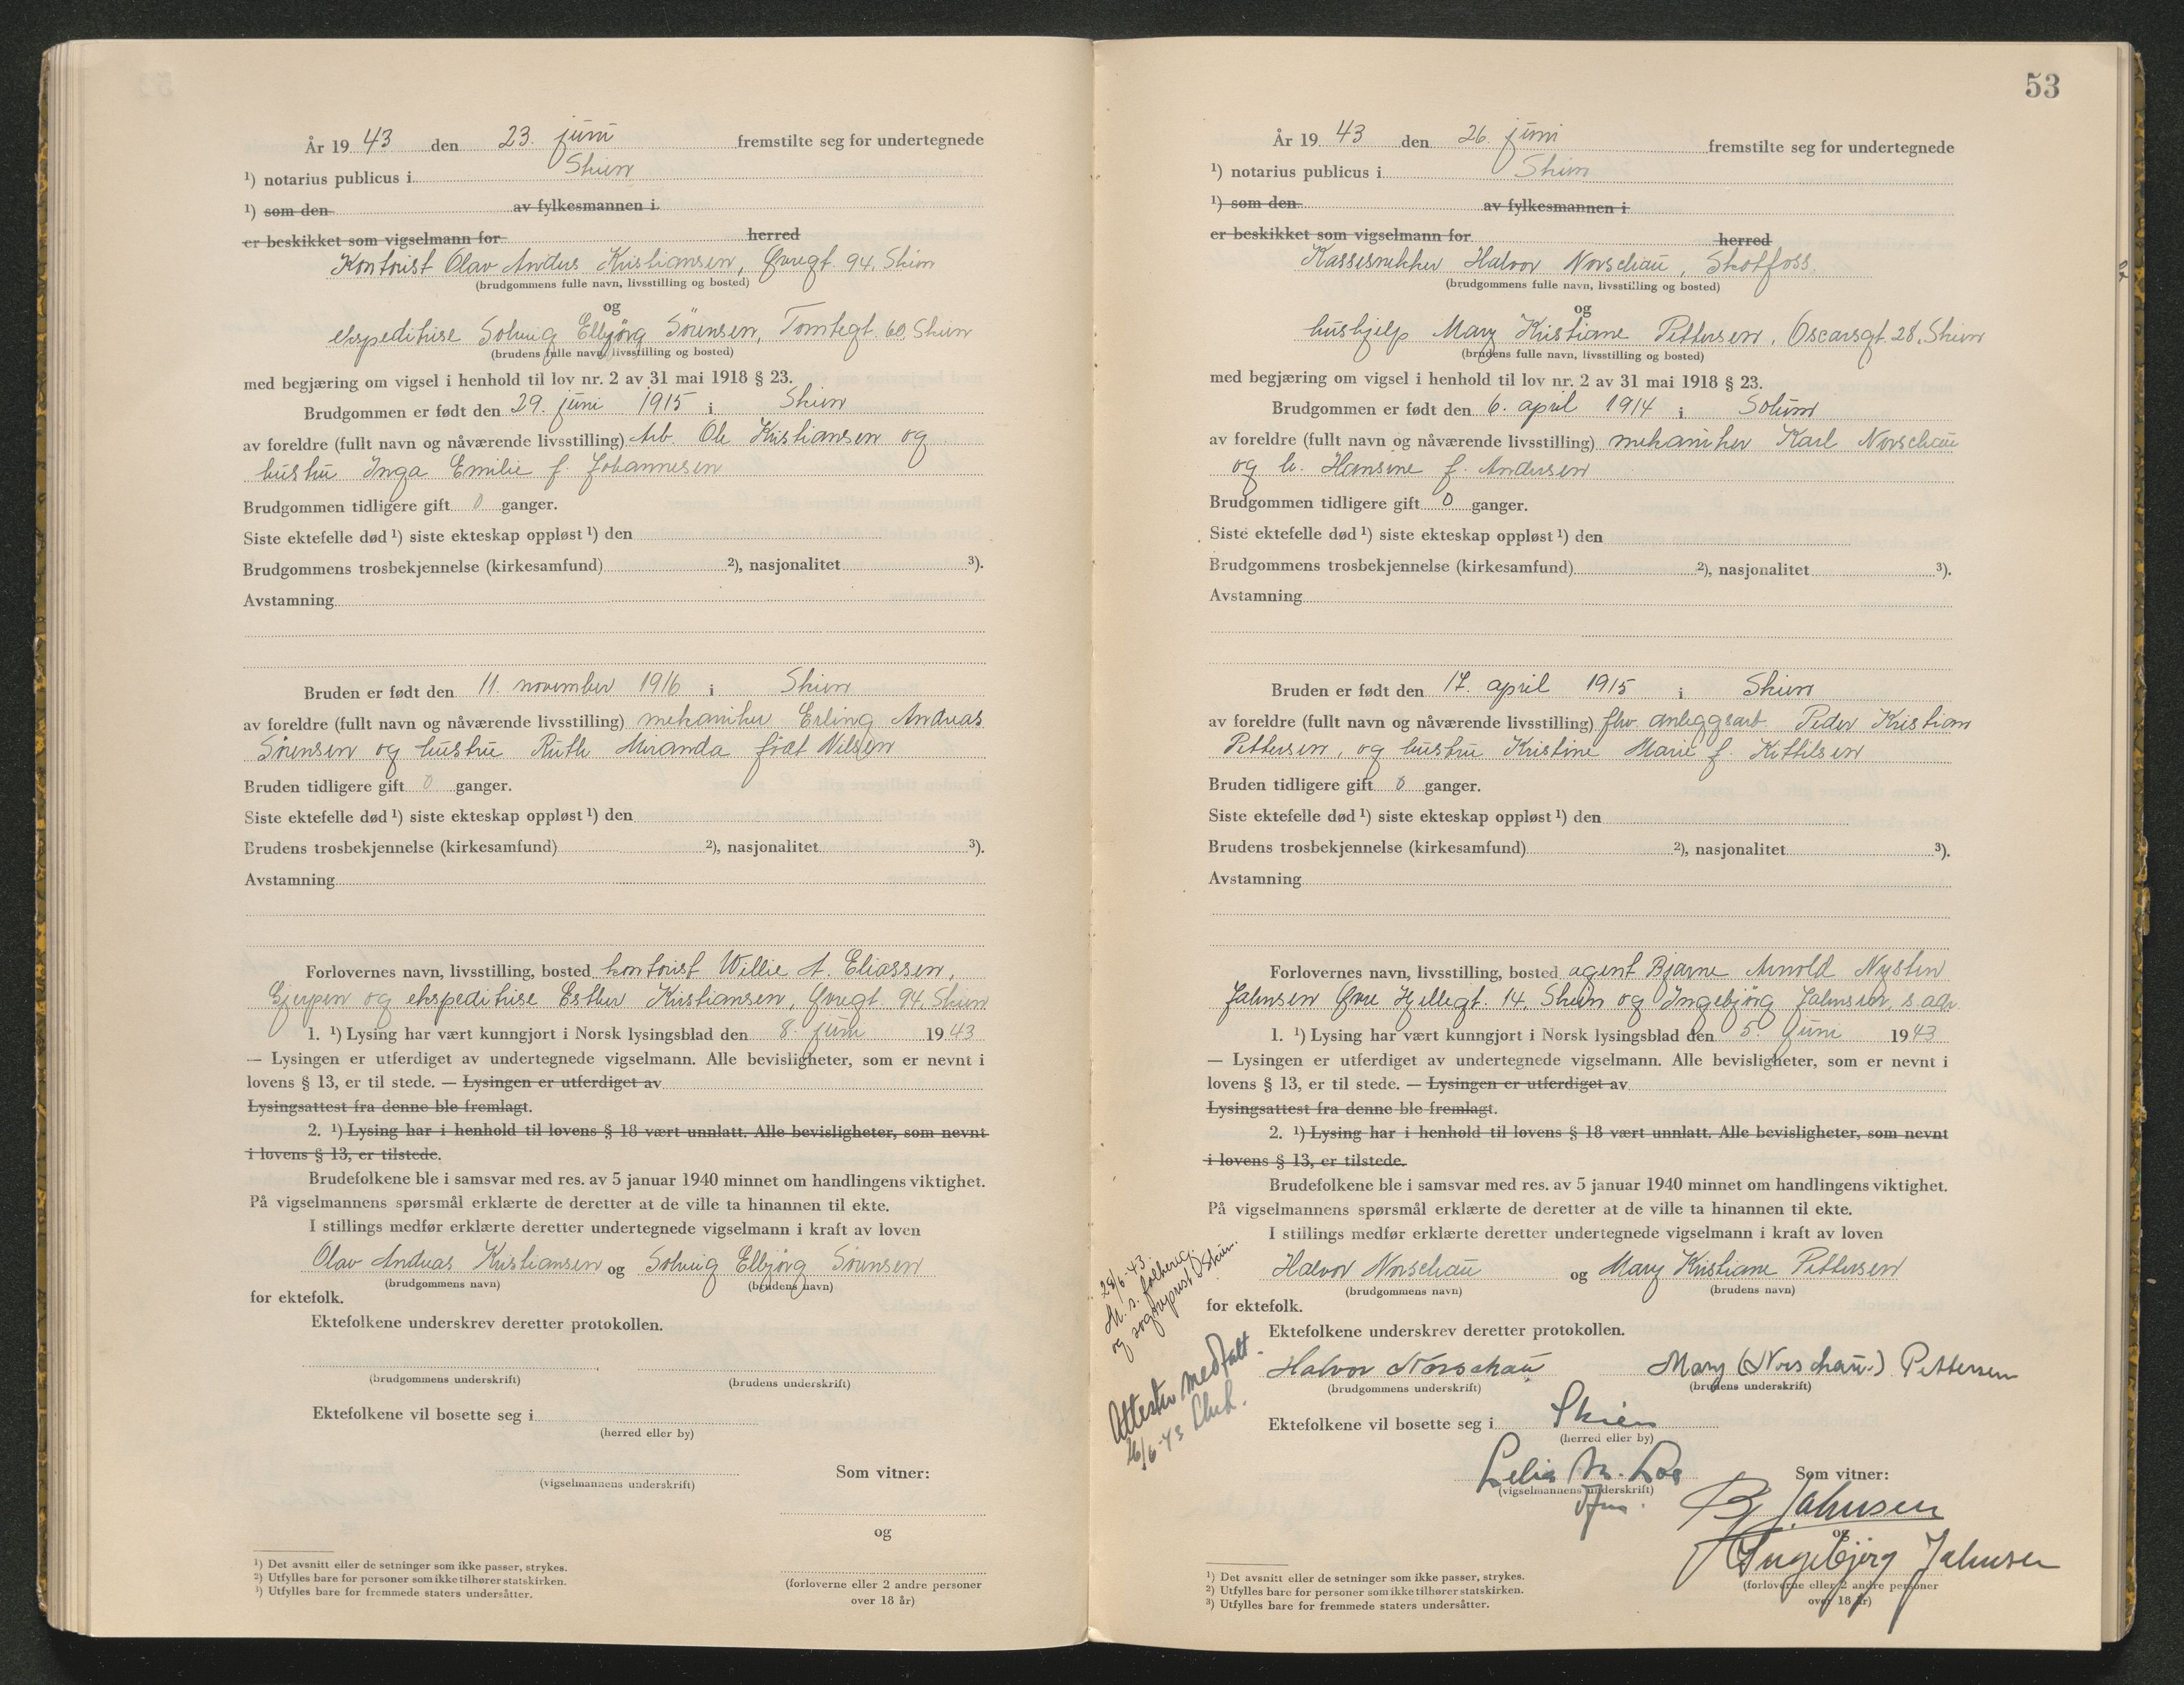 År 19 43 den 23. juni fremstilte seg for undertegnede
¹) notarius publicus i Skien
¹) som den av fylkesmannen i
er beskikket som vigselmann for herred
Kontorist Olav Andreas Kristiansen, Øvregt. 94, Skien
(brudgommens fulle navn, livsstilling og bosted)
og
ekspeditrise Solveig Elbjörg Sörensen, Tomtegt. 60, Skien
(brudens fulle navn, livsstilling og bosted)
med begjæring om vigsel i henhold til lov nr. 2 av 31 mai 1918 § 23.
Brudgommen er født den 29. juni 1915 i Skien
av foreldre (fullt navn og nåværende livsstilling) Arb. Ole Kristiansen og
hustru Inga Emilie f. Johannesen
Brudgommen tidligere gift 0 ganger.
Siste ektefelle død ¹) siste ekteskap oppløst ¹) den
Brudgommens trosbekjennelse (kirkesamfund) ²), nasjonalitet ³).
Avstamning
Bruden er født den 11. november 1916 i Skien
av foreldre (fullt navn og nåværende livsstilling) mekaniker Erling Andreas
Sörensen og hustru Ruth Miranda född Nilsen
Bruden tidligere gift 0 ganger.
Siste ektefelle død ¹) siste ekteskap oppløst ¹) den
Brudens trosbekjennelse (kirkesamfund) ²), nasjonalitet ³).
Avstamning
Forlovernes navn, livsstilling, bosted kontorist Willie A. Eliassen,
Gjerpen og ekspeditrise Esther Kristiansen, Øvregt. 94, Skien
1. ¹) Lysing har vært kunngjort i Norsk lysingsblad den 8. juni 1943
— Lysingen er utferdiget av undertegnede vigselmann. Alle bevisligheter, som er nevnt i
lovens § 13, er til stede. — Lysingen er utferdiget av
Lysingsattest fra denne ble fremlagt.
2. ¹) Lysing har i henhold til lovens § 18 vært unnlatt. Alle bevisligheter, som nevnt
i lovens § 13, er tilstede.
Brudefolkene ble i samsvar med res. av 5 januar 1940 minnet om handlingens viktighet.
På vigselmannens spørsmål erklærte de deretter at de ville ta hinannen til ekte.
I stillings medfør erklærte deretter undertegnede vigselmann i kraft av loven
Olav Andreas Kristiansen og Solveig Elbjörg Sörensen
(brudgommens navn) (brudens navn)
for ektefolk.
Ektefolkene underskrev deretter protokollen.
(brudgommens underskrift) (brudens underskrift)
Ektefolkene vil bosette seg i
(herred eller by)
Som vitner:
(vigselmannens underskrift)
og
(forloverne eller 2 andre personer
over 18 år)
¹) Det avsnitt eller de setninger som ikke passer, strykes.
²) Utfylles bare for personer som ikke tilhører statskirken.
³) Utfylles bare for fremmede staters undersåtter.
53
År 19 43 den 26. juni fremstilte seg for undertegnede
¹) notarius publicus i Skien
¹) som den av fylkesmannen i
er beskikket som vigselmann for herred
Kassesnekker Halvor Norschau, Skotfoss.
(brudgommens fulle navn, livsstilling og bosted)
og
hushjelp Mary Kristiane Pettersen, Oscarsgt. 28, Skien
(brudens fulle navn, livsstilling og bosted)
med begjæring om vigsel i henhold til lov nr. 2 av 31 mai 1918 § 23.
Brudgommen er født den 6. april 1914 i Solum
av foreldre (fullt navn og nåværende livsstilling) mekaniker Karl Norschau
og h. Hansine f. Andersen
Brudgommen tidligere gift 0 ganger.
Siste ektefelle død ¹) siste ekteskap oppløst ¹) den
Brudgommens trosbekjennelse (kirkesamfund) ²), nasjonalitet ³).
Avstamning
Bruden er født den 17. april 1915 i Skien
av foreldre (fullt navn og nåværende livsstilling) fhv. anleggsarb. Peder Kristian
Pettersen, og hustru Kristine Marie f. Kittilsen
Bruden tidligere gift 0 ganger.
Siste ektefelle død ¹) siste ekteskap oppløst ¹) den
Brudens trosbekjennelse (kirkesamfund) ²), nasjonalitet ³).
Avstamning
Forlovernes navn, livsstilling, bosted agent Bjarne Arnold Nysten
Jahnsen Øvre Hjellegt. 14, Skien og Ingebjörg Jahnsen, s. adr.
1. ¹) Lysing har vært kunngjort i Norsk lysingsblad den 5. juni 1943
— Lysingen er utferdiget av undertegnede vigselmann. Alle bevisligheter, som er nevnt i
lovens § 13, er til stede. — Lysingen er utferdiget av
Lysingsattest fra denne ble fremlagt.
2. ¹) Lysing har i henhold til lovens § 18 vært unnlatt. Alle bevisligheter, som nevnt
i lovens § 13, er tilstede.
Brudefolkene ble i samsvar med res. av 5 januar 1940 minnet om handlingens viktighet.
På vigselmannens spørsmål erklærte de deretter at de ville ta hinannen til ekte.
I stillings medfør erklærte deretter undertegnede vigselmann i kraft av loven
Halvor Norschau og Mary Kristiane Pettersen
(brudgommens navn) (brudens navn)
for ektefolk.
Ektefolkene underskrev deretter protokollen.
Halvor Norschau Mary (Norschau) Pettersen
(brudgommens underskrift) (brudens underskrift)
Ektefolkene vil bosette seg i Skien
(herred eller by)
28/6-43.
M. s. folkereg.
og sogneprest Skien.
Attester medfølt.
26/6-43
Som vitner:
(vigselmannens underskrift)
B Jahnsen
og
Ingebjörg Jahnsen
(forloverne eller 2 andre personer
over 18 år)
¹) Det avsnitt eller de setninger som ikke passer, strykes.
²) Utfylles bare for personer som ikke tilhører statskirken.
³) Utfylles bare for fremmede staters undersåtter.